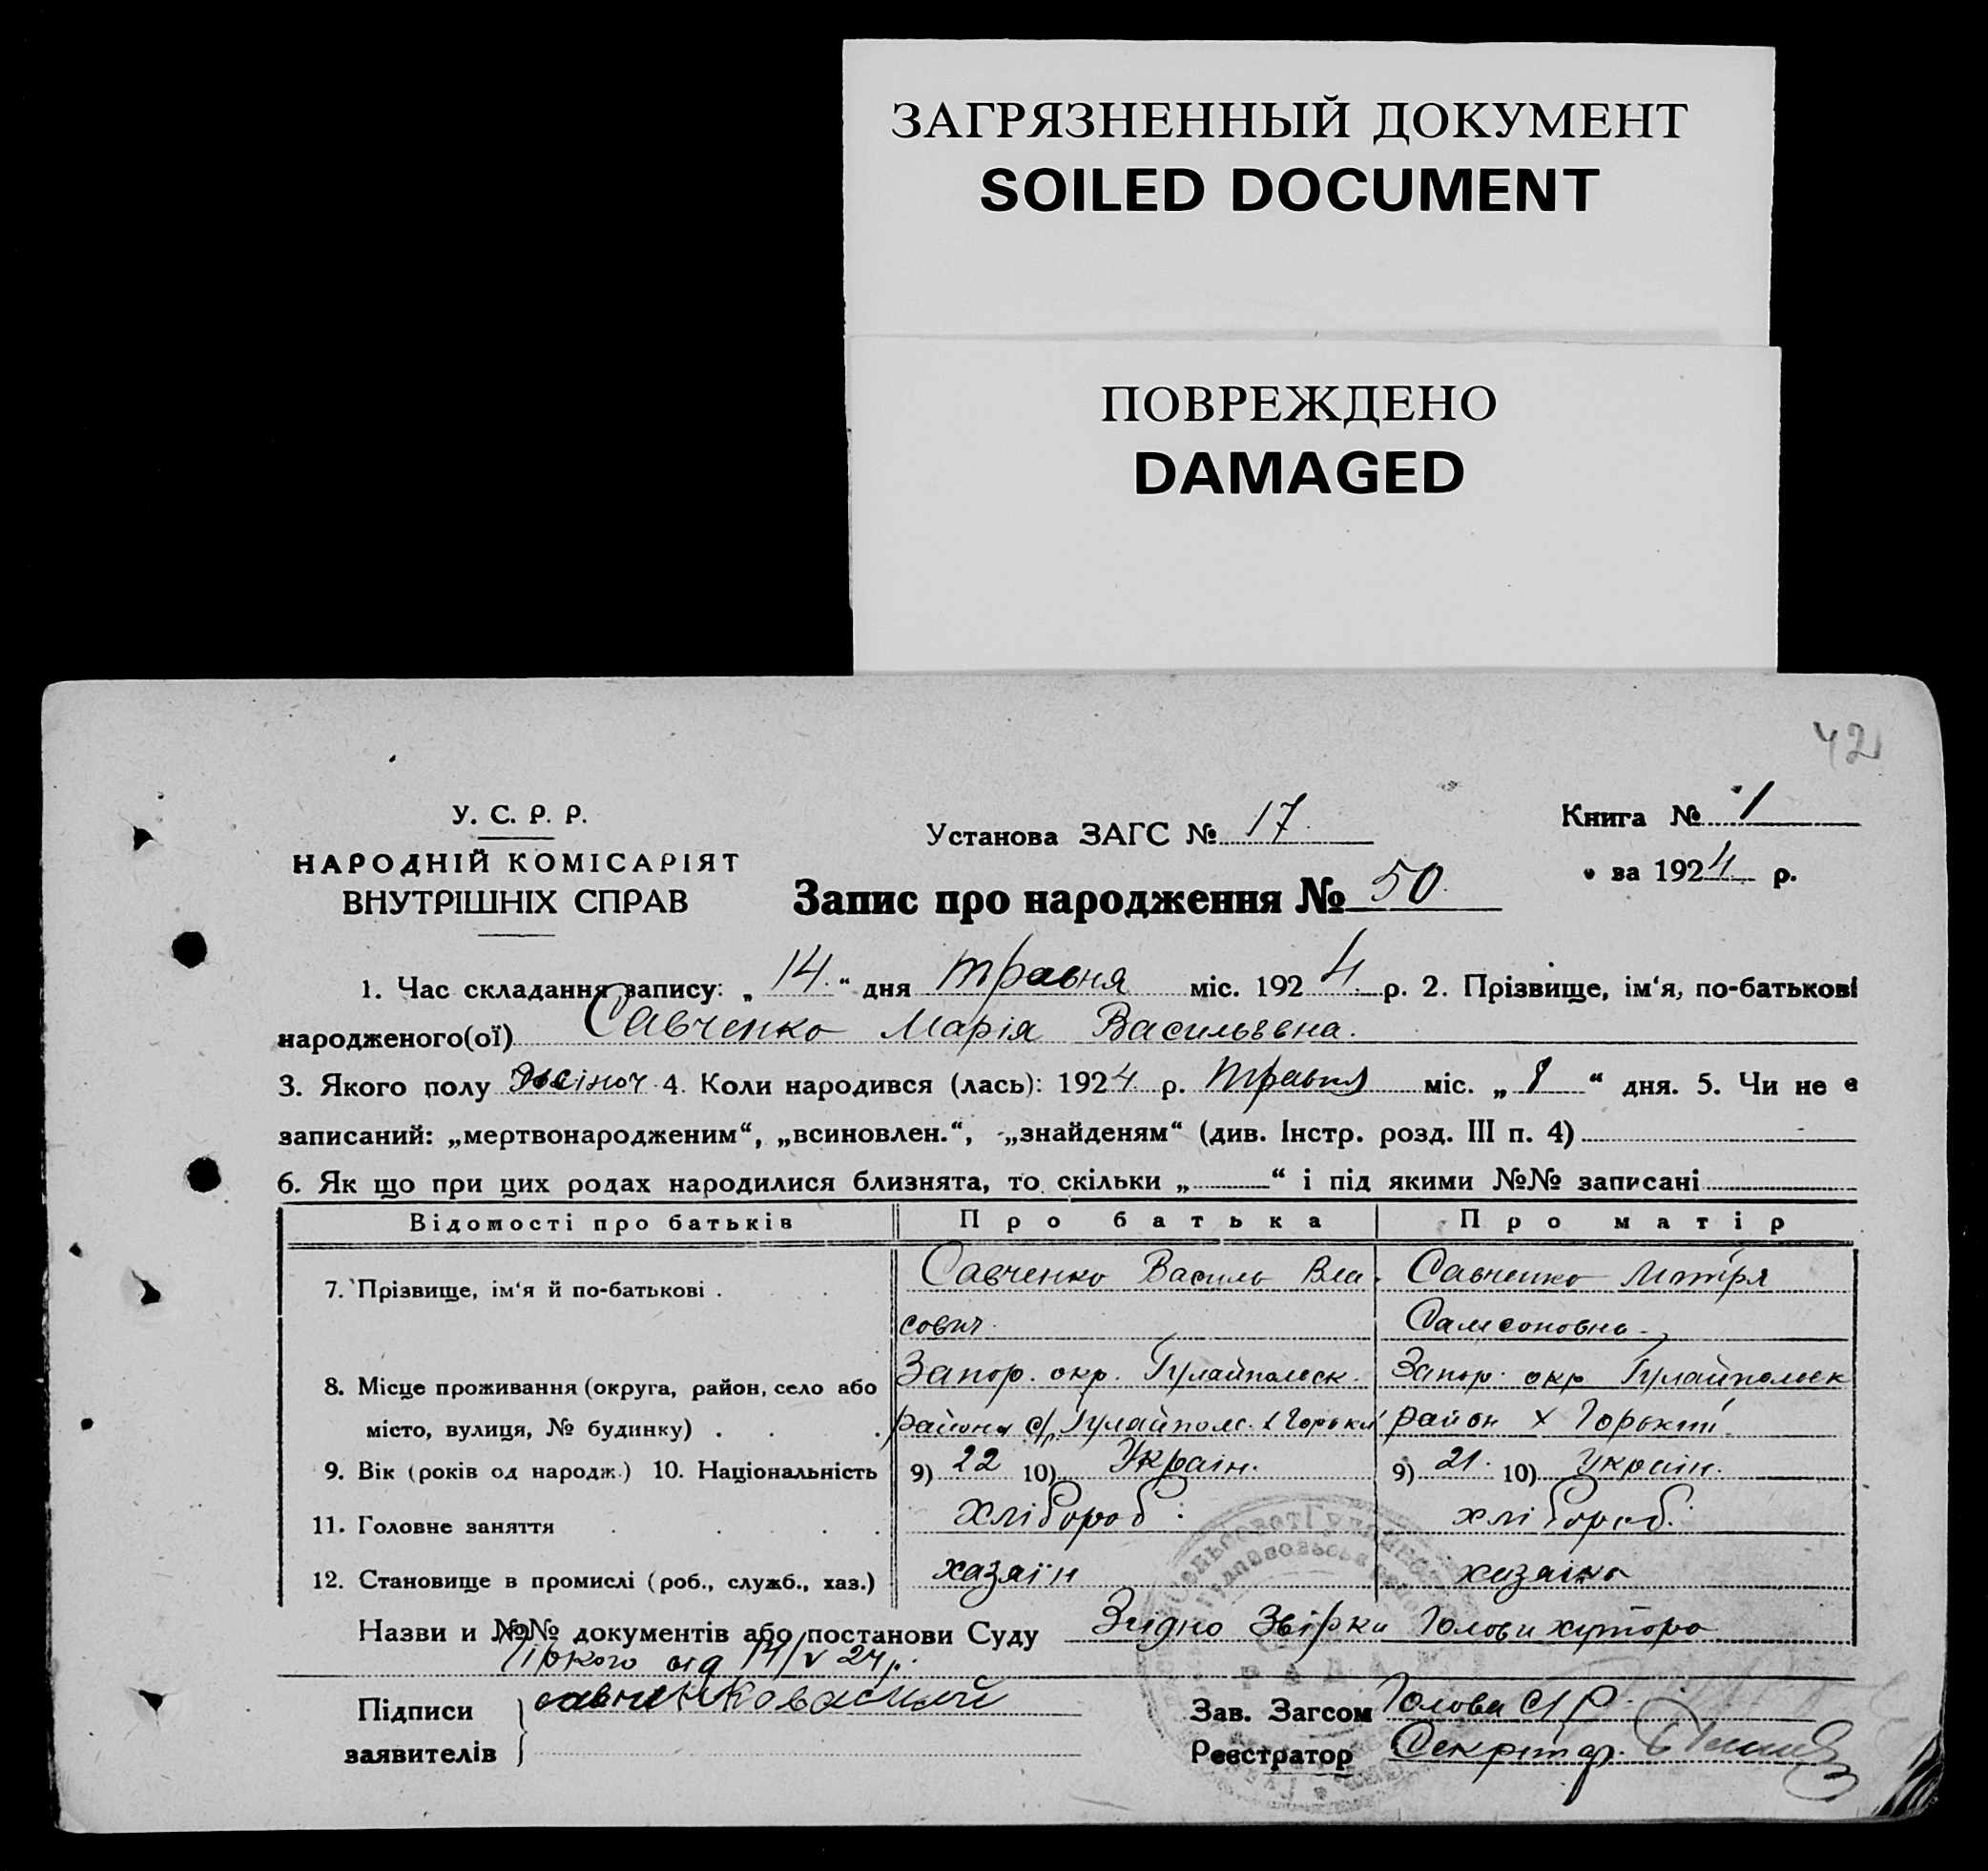 ЗАГРЯЗНЕННЫЙ ДОКУМЕНТ
SOILED DOCUMENT
ПОВРЕЖДЕНО
DAMAGED
42
У. С. Р. Р.
НАРОДНІЙ КОМІСАРІЯТ
ВНУТРІШНІХ СПРАВ
Установа ЗАГС № 17.
Запис про народження № 50.
Книга № 1
за 1924 р.
1. Час складання запису: „ 14. “ дня травня міс. 1924 р. 2. Прізвище, ім‘я, по-батькові
народженого(ої) Савченко Марія Васильевна.
3. Якого полу жіноч 4. Коли народився (лась): 1924 р. травня міс. „ “ дня. 5. Чи не є
записаний: „мертвонародженим“, „всиновлен.“, „знайденям“ (див. Інстр. розд. III п. 4)
6. Як що при цих родах народилися близнята, то скільки „ “ і під якими №№ записані
Відомості про батьків Про батька Про матір
7. Прізвище, ім‘я й по-батькові . Савченко Василь Вла- Савченко Мотря
сович. Самсоновна.
8. Місце проживання (округа, район, село або Запор. окр. Гуляйпольск. Запор. окр Гуляйпольск
місто, вулиця, № будинку) . . . района с/р Гуляйполь. х Горьки район х Горький
9. Вік (років од народж.) 10. Національність 9) 22 10) Україн. 9) 21. 10) Україн.
11. Головне заняття . . . . хлібороб хлібороб.
12. Становище в промислі (роб., служб., хаз.) хазяїн хазяїка
Назви и №№ документів або постанови Суду Згідно Звірки Голови хутора
Гірького від 14/V 24 р.
Підписи Савченко Василий Зав. Загсом Голова С/Р.
заявителів Реєстратор Секретар.